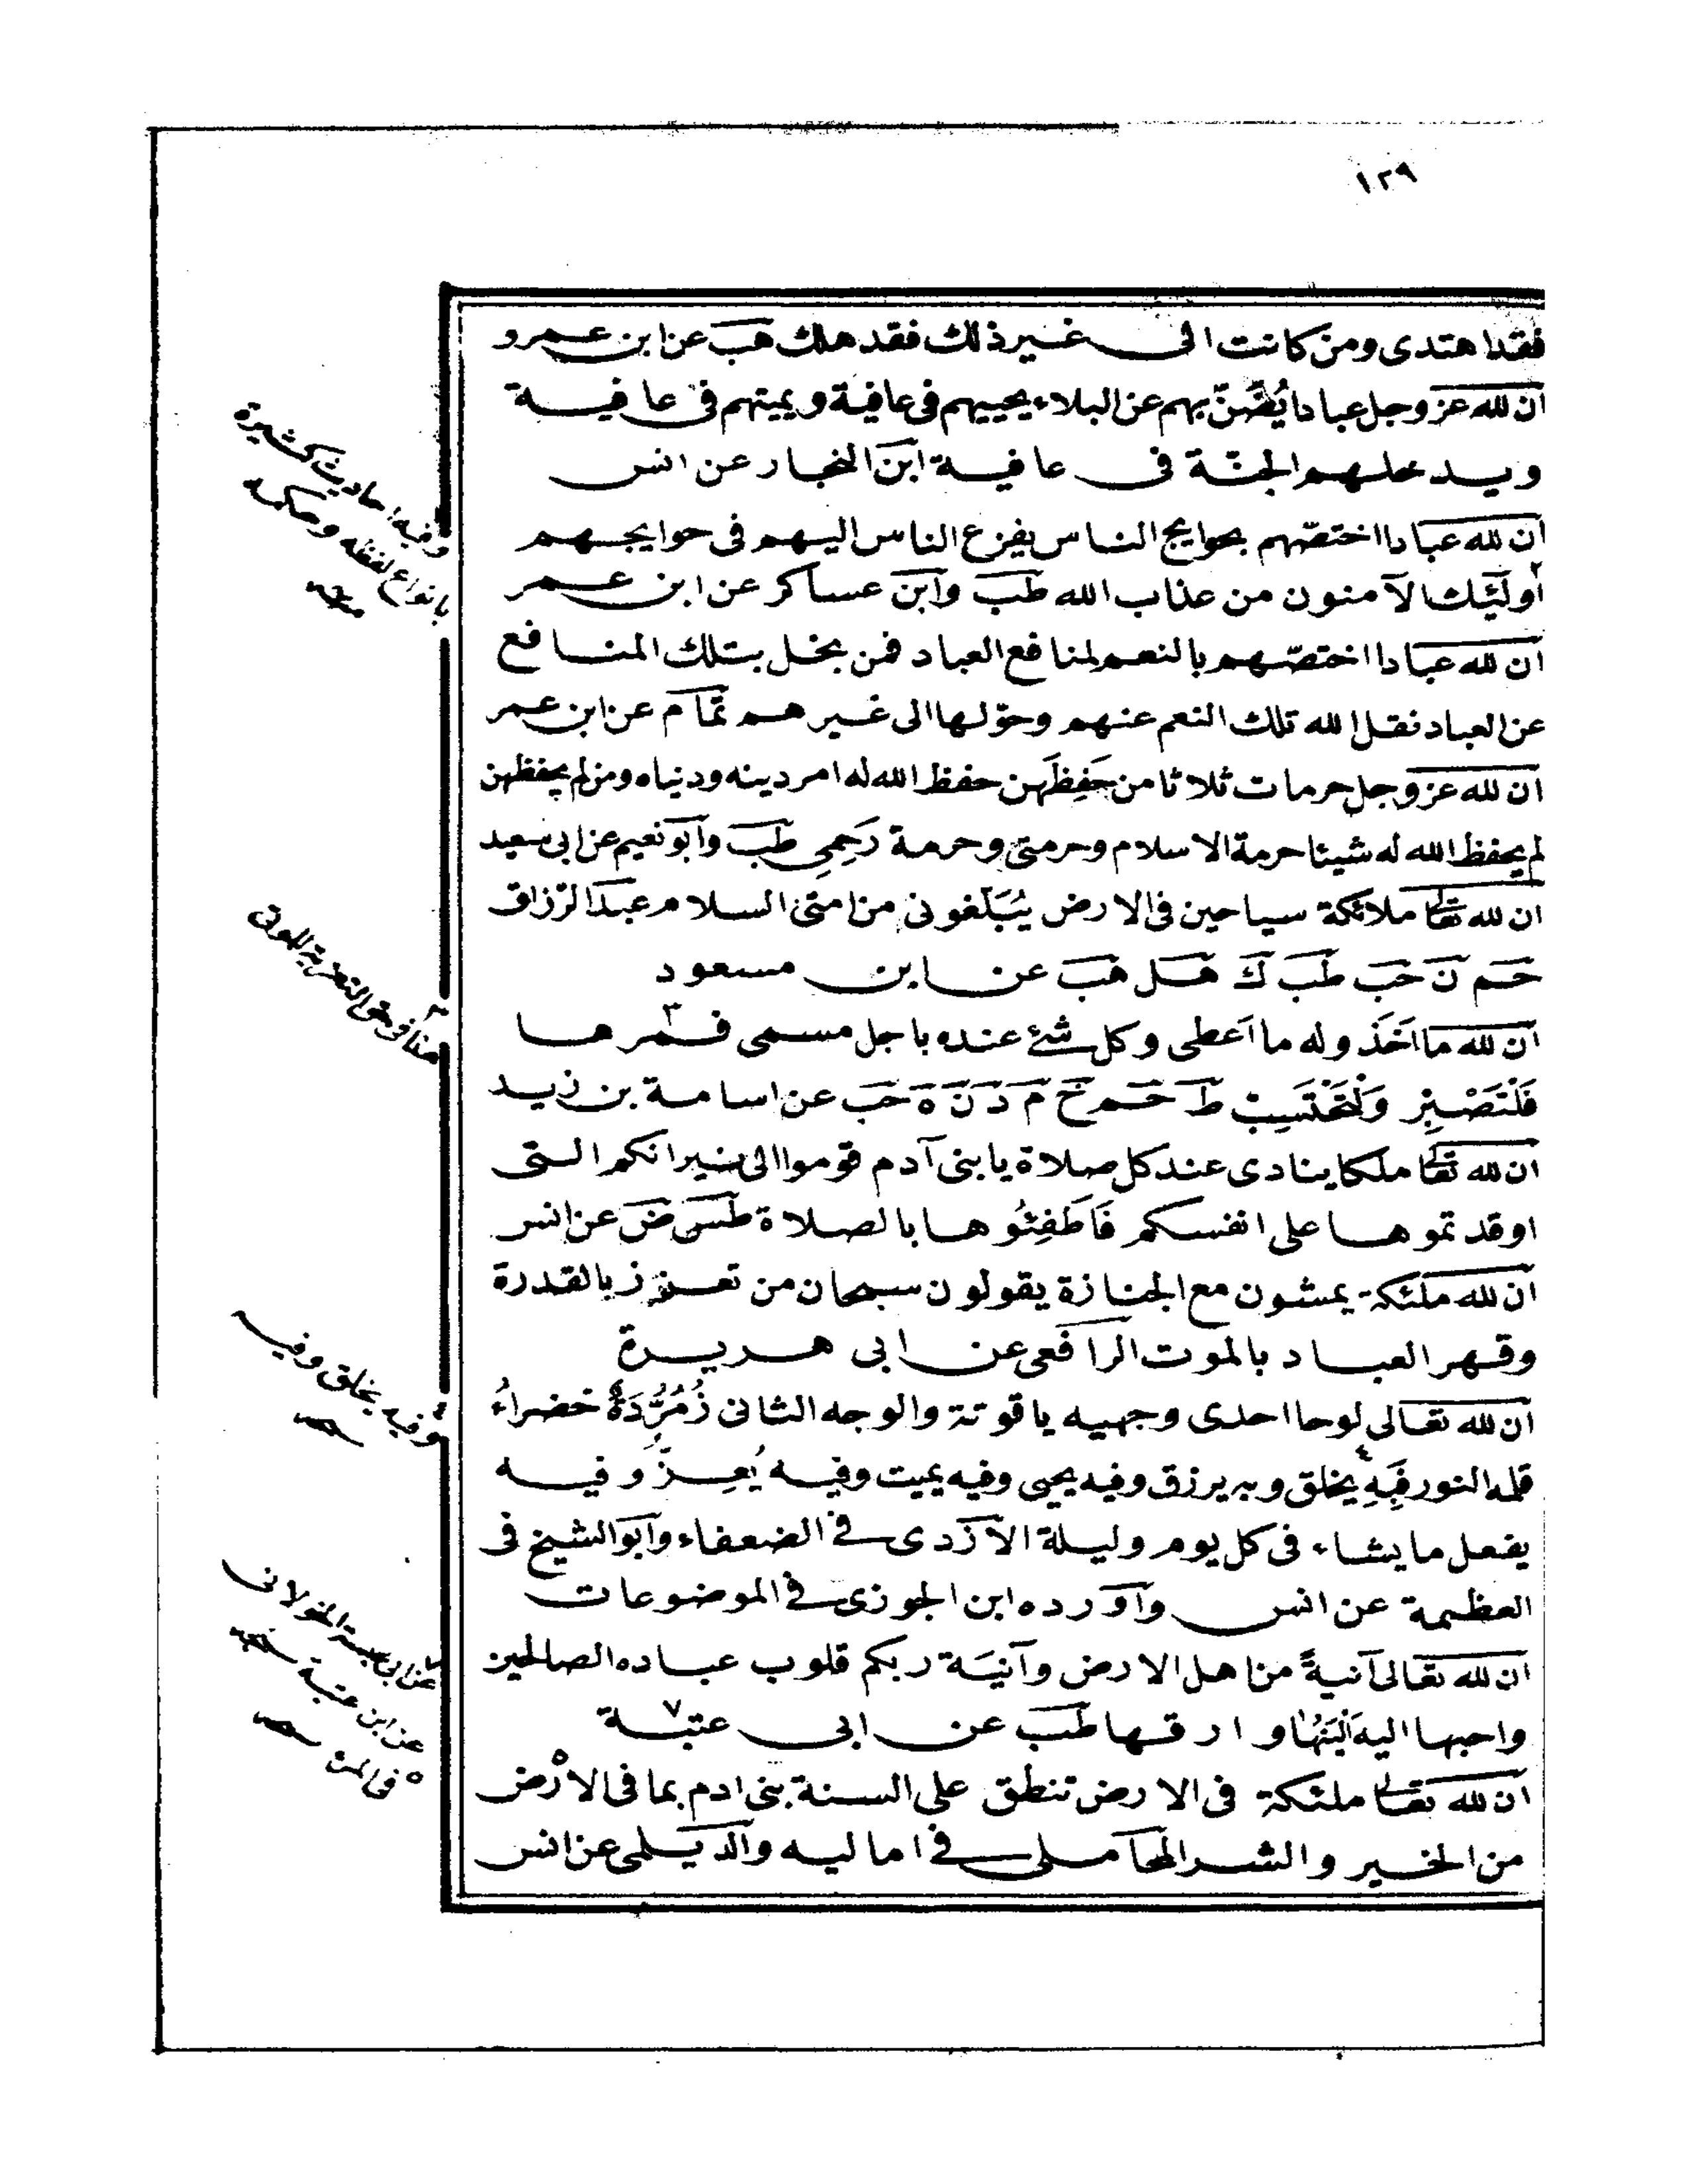 ١٢٩
فقد اهتدى ومن كانت الى غير ذلك فقد هلك هب عن ابن عمرو
ان لله عز وجل عبادا يُضَنّ بهم عن البلاء يحييهم فى عافية ويميتهم فى عافية
ويدخلهم الجنّة فى عافية ابن النجار عن انس
ان لله عبادا اختصّهم بحوايج الناس يفزع الناس اليهم فى حوايجهم
اولَئِك الآمنون من عذاب الله طب وابن عساكر عن ابن عمر
ان لله عبادا اختصّهم بالنعم لمنافع العباد فمن بخل بتلك المنافع
عن العباد نقل الله تلك النعم عنهم وحوّلها الى غيرهم تمّام عن ابن عمر
ان لله عز وجل حرمات ثلاثا من حَفِظَهن حفظ الله له امر دينه ودنياه ومن لم يحفظهن
لم يحفظ الله له شيئا حرمة الاسلام وحرمتى وحرمة رَحِمِى طب وابو نعيم عن ابى سعيد
ان لله تعالى ملائكة سياحين فى الارض يُبَلّغونى من امتى السلام عبد الرزاق
حم ن حب طب ك هل هب عن ابن مسعود
ان لله ما اَخَذَ وله ما اَعطى وكل شئ عنده باجل مسمى ٣ فمرها
فَلْتَصْبِرْ وَلْتَحْتَسِبْ ط حم خ م د ن ه حب عن اسامة بن زيد
ان لله تعالى ملكا ينادى عند كل صلاة يا بنى آدم قوموا الى نيرانكم التى
اوقدتموها على انفسكم فَاَطْفِئُوها بالصلاة طس ض عن انس
ان لله ملئكة يمشون مع الجنازة يقولون سبحان من تعزز بالقدرة
وقهر العباد بالموت الرافعى عن ابى هريرة
ان لله تعالى لوحا احدى وجهيه ياقوتة والوجه الثانى زُمُرُّدَةٌ خضراءُ
قلمه النور فَبِهِ ٤ يخلق وبه يرزق وفيه يحيى وفيه يميت وفيه يُعِزّ وفيه
يفعل ما يشاء فى كل يوم وليلة الازدى فى الضعفاء وابو الشيخ فى
العظمة عن انس واورده ابن الجوزى فى الموضوعات
ان لله تعالى آنيةً من اهل الارض وآنِيَة ربكم قلوب عباده الصالحين
واحبها اليه اَلْيَنُهَا وارقها طب عن ابى عتبة ٧
ان لله تعالى ملئكة فى الارض تنطق على السنة بنى ادم بما فى الارض ٥
من الخير والشر المحاملى فى اماليه والديلمى عن انس
وفيه احاديث كثيرة
بانواع لفظه وحكمه
هنا فوهو التعزية للموتى
٤ وفيه يخلق وفيه
عن ابى عنبسة الخولانى
عن ابن عتبة
٥ فى المرء